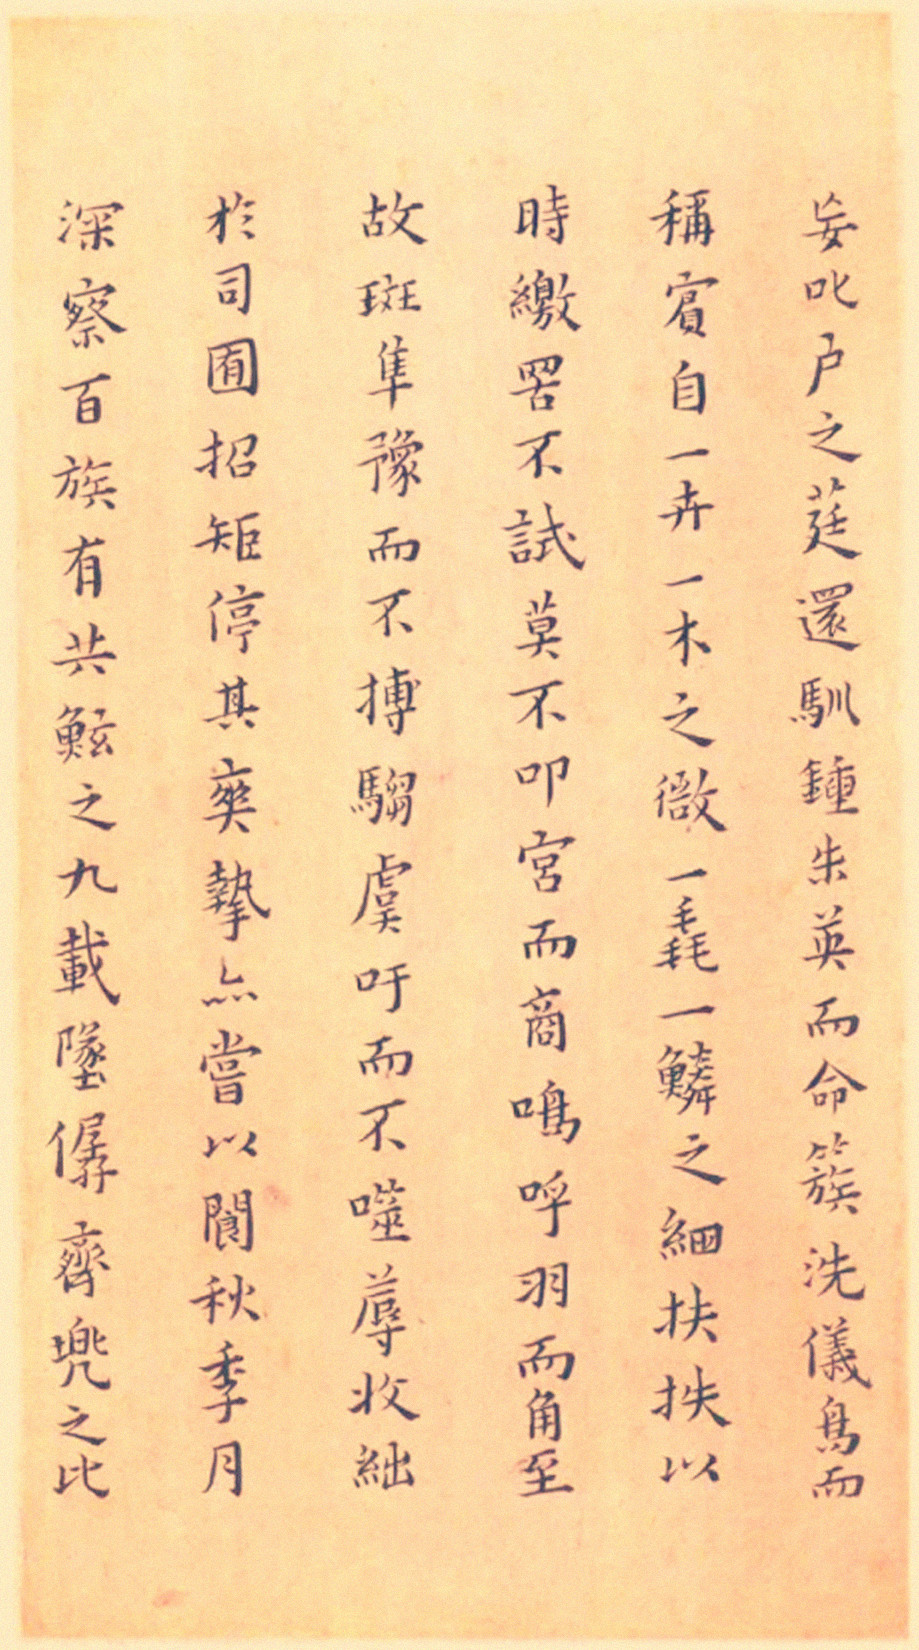 妄叱户之莛還馴鍾朱英而命簇洗儀鳥而
稱賓自一卉一木之微一毳一鱗之細扶抶以
時繳罟不試莫不叩宮而商鳴呼羽而角至
故斑隼豫而不搏騶虞吁而不噬蓐收絀
於司囿招矩停其爽摯亦嘗以閬秋季月
深察百族有共鮌之九載墜僝齊兜之比